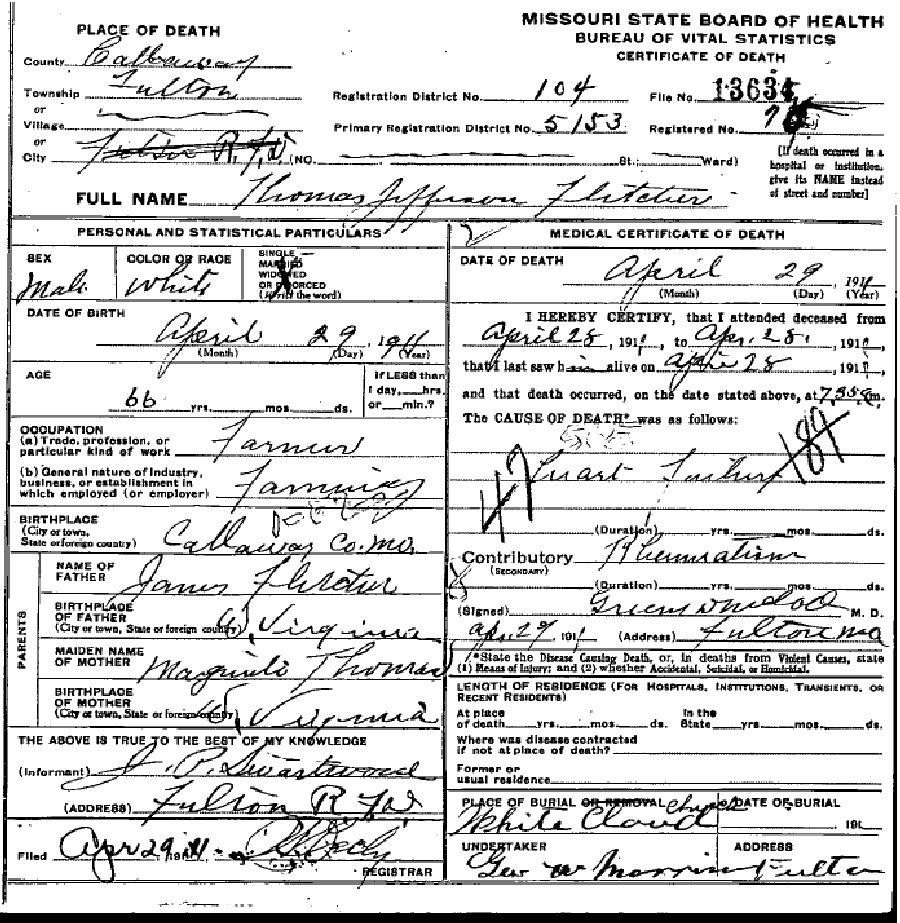 MISSOURI STATE BOARD OF HEALTH
BUREAU OF VITAL STATISTICS
CERTIFICATE OF DEATH
PLACE OF DEATH
County Callaway
Township Fulton
or
Village
or
City Fulton R.F.D (NO. St.; Ward)
Registration District No. 104 File No. 13634
Primary Registration District No. 5153 Registered No.
[If death occurred in a hospital or institution, give its NAME instead of street and number]
FULL NAME Thomas Jefferson Fletcher
PERSONAL AND STATISTICAL PARTICULARS
SEX Male
COLOR OR RACE White
SINGLE
MARRIED
WIDOWED
OR DIVORCED
(Write the word)
DATE OF BIRTH
April 29 1911
(Month) (Day) (Year)
AGE
66 yrs. mos. ds.
If LESS than
1 day, hrs.
or min.?
OCCUPATION
(a) Trade, profession, or
particular kind of work Farmer
(b) General nature of Industry,
business, or establishment in
which employed (or employer) Farming
BIRTHPLACE
(City or town,
State or foreign country) Callaway Co. Mo.
PARENTS
NAME OF
FATHER James Fletcher
BIRTHPLACE
OF FATHER
(City or town, State or foreign country) Virginia
MAIDEN NAME
OF MOTHER Thomas
BIRTHPLACE
OF MOTHER
(City or town, State or foreign country) Virginia
THE ABOVE IS TRUE TO THE BEST OF MY KNOWLEDGE
(Informant) J. P. Swartwood
(ADDRESS) Fulton R F D
Filed Apr 29 1911
REGISTRAR
MEDICAL CERTIFICATE OF DEATH
DATE OF DEATH
April 29 1911
(Month) (Day) (Year)
I HEREBY CERTIFY, that I attended deceased from
April 28, 1911, to Apr. 28, 1911,
that I last saw him alive on April 28, 1911,
and that death occurred, on the date stated above, at m.
The CAUSE OF DEATH* was as follows:
Heart Failure
47 189
(Duration) yrs. mos. ds.
Contributory Rheumatism
(SECONDARY)
(Duration) yrs. mos. ds.
(Signed) M. D.
Apr. 29 1911 (Address) Fulton Mo
*State the Disease Causing Death, or, in deaths from Violent Causes, state
(1) Means of Injury; and (2) whether Accidental, Suicidal, or Homicidal.
LENGTH OF RESIDENCE (FOR HOSPITALS, INSTITUTIONS, TRANSIENTS, OR
RECENT RESIDENTS)
At place In the
of death yrs. mos. ds. State yrs. mos. ds.
Where was disease contracted
if not at place of death?
Former or
usual residence
PLACE OF BURIAL OR REMOVAL DATE OF BURIAL
White Cloud Church 191
UNDERTAKER ADDRESS
Geo W Morris Fulton